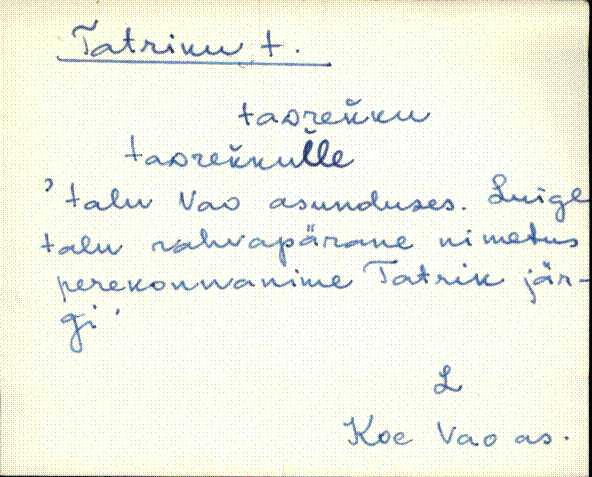 Tatriku t.
taᴅrek̆ku
taᴅrek̆kulle
' talu Vao asunduses. Luige
talu rahvapärane nimetus
perekonnanime Tatrik jär-
gi '
L
Koe Vao as.